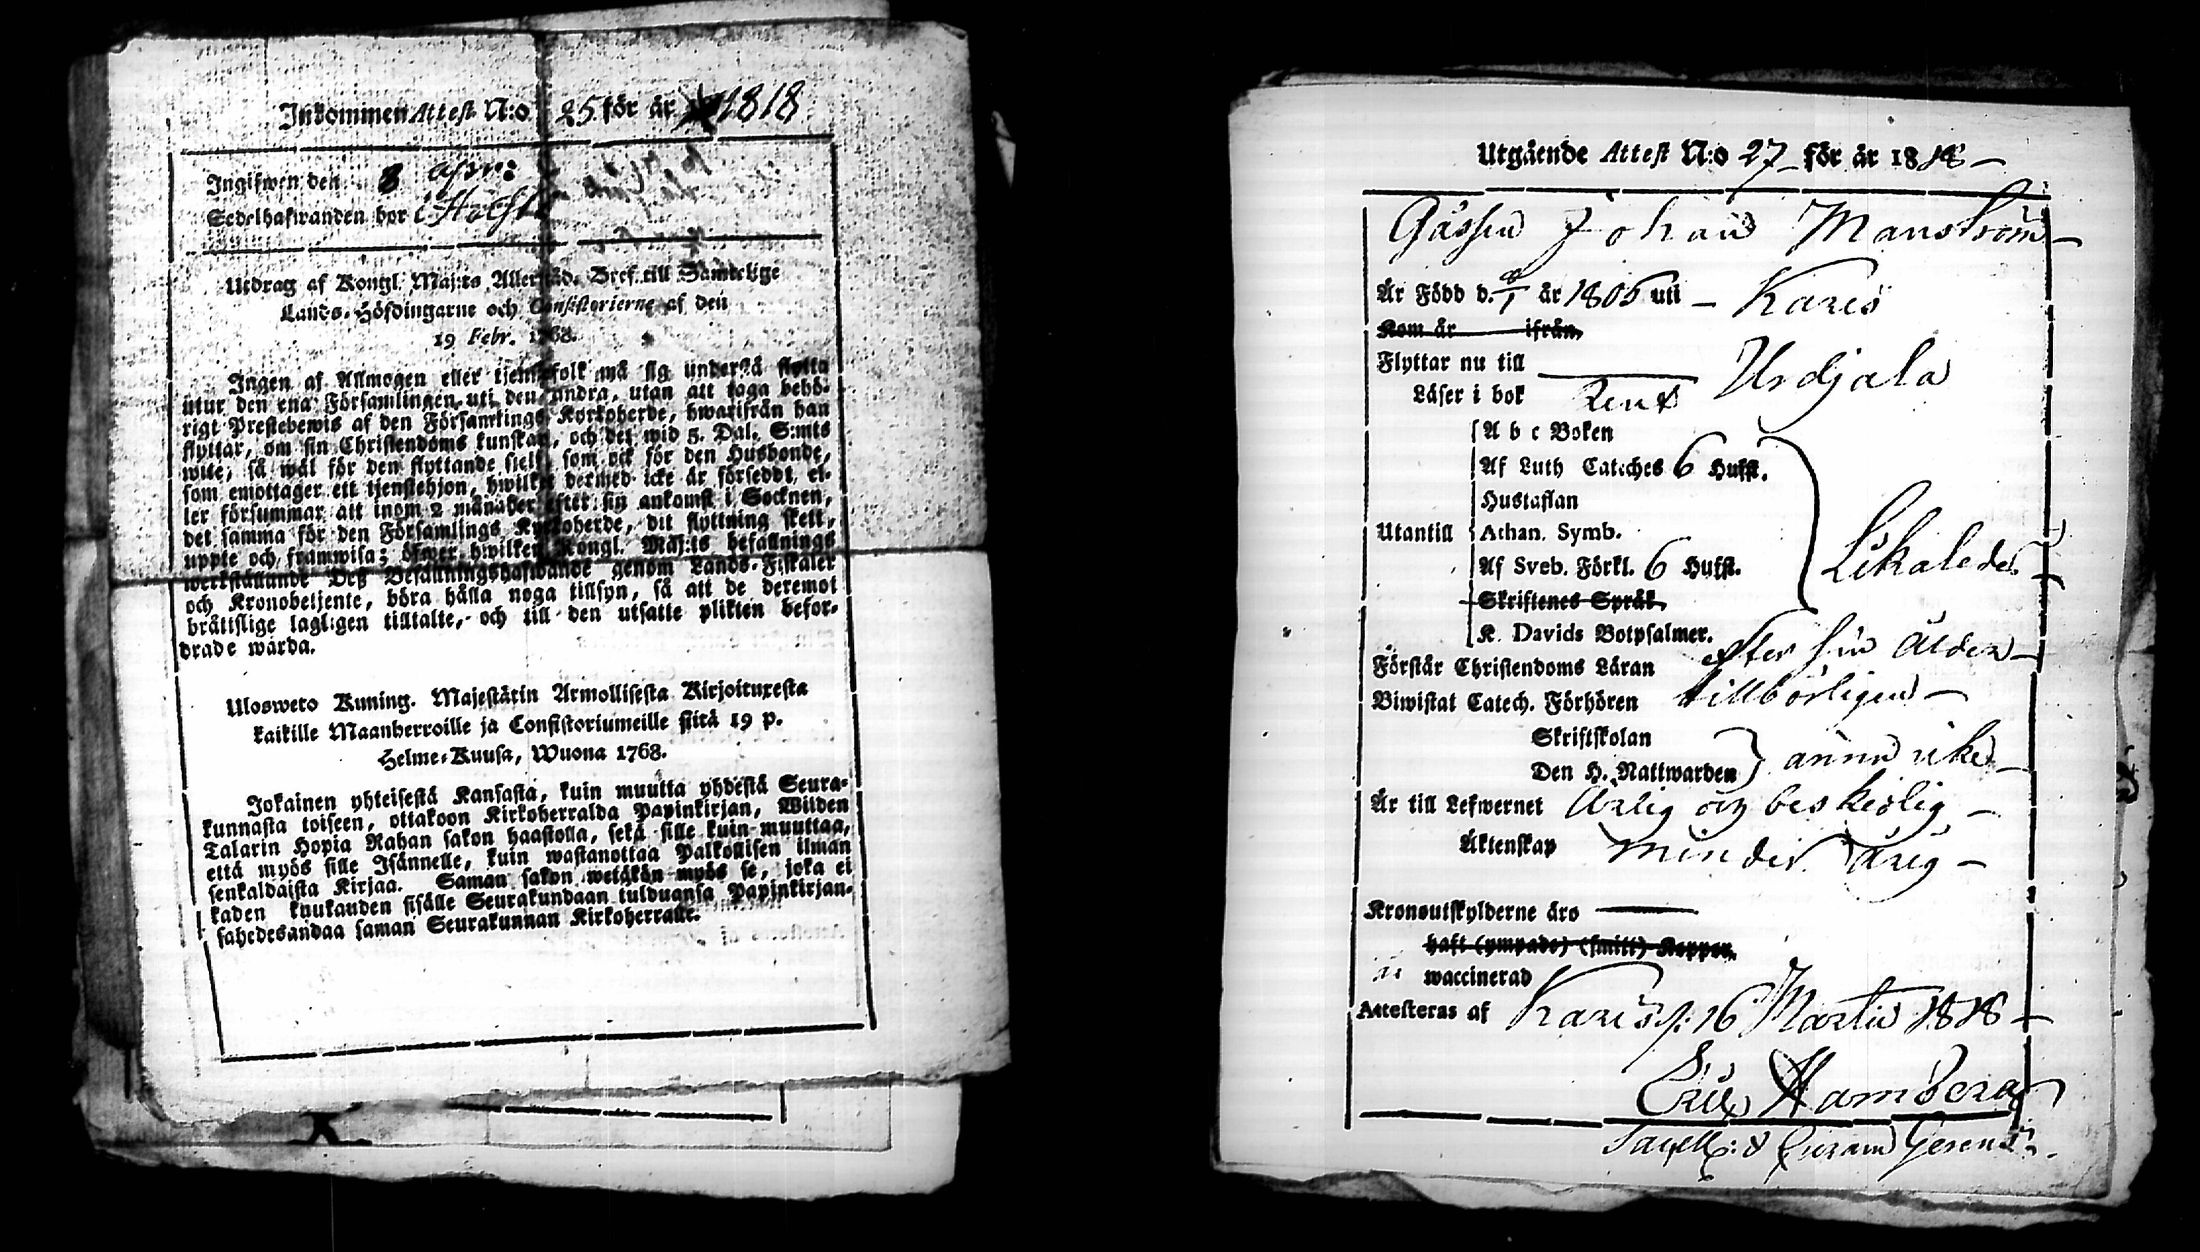 Inkommen Attest N:o 25 för år 1818
Ingifwen den 8 apr:
Sedelhafwanden bor i
Utdrag af Kongl. Maj:ts Allernåd. Bref till Samtelige
Lands-Höfdingarne och Consistorierne af den
19 Febr. 1768.
Ingen af Allmogen eller tjenstefolk må sig understå flytta
utur den ena Församlingen uti den andra, utan att taga behö-
rigt Prestebewis af den Församlings Kyrkoherde, hwarifrån han
flyttar, om sin Christendoms kunskap, och det wid 5. Dal. S:mts
wite, så wäl för den flyttande sielf som ock för den Husbonde,
som emottager ett tjenstehjon, hwilket dermed icke är försedt, el-
ler försummar att inom 2 månader efter sin ankomst i Socknen,
det samma för den Församlings Kyrkoherde, dit flyttning skett,
uppte och framwisa; öfwer hwilken Kongl. Maj:ts befallnings
werkställande Deß Befallningshafwande genom Lands-Fiskaler
och Kronobetjente, böra hålla noga tillsyn, så att de deremot
bråttslige lagligen tilltalte, och till den utsatte plikten befor-
drade warda.
Ulosweto Kuning. Majestätin Armollisesta Kirjoituxesta
kaikille Maanherroille ja Consistoriumeille siitä 19 p.
Helme-Kuusa, Wuona 1768.
Jokainen yhteisestä Kansasta, kuin muutta yhdestä Seura-
kunnasta toiseen, ottakoon Kirkoherralda Papinkirjan, Wilden
Talarin Hopia Rahan sakon haastolla, sekä sille kuin muuttaa,
että myös sille Isännelle, kuin wastanottaa Palkollisen ilman
senkaldaista Kirjaa. Saman sakon wetäkön myös se, joka ei
kahden kuukauden sisälle Seurakundaan tulduansa Papinkirjan-
sahedesandaa saman Seurakunnan Kirkoherralle.
Utgående Attest N:o 27 för år 1818
Gåssen Johan Manström
Är Född d. 8/1 år 1806 uti Karis
Kom år ifrån
Flyttar nu till Urdjala
Läser i bok Rent
A b c Boken
Af Luth Catches 6 Hufst.
Hustaflan
Utantill Athan. Symb. Likaledes
Af Sveb. Förkl. 6 Hufst.
Skriftenes Språk
K. Davids Botpsalmer.
Förstår Christendoms Läran efter sin ålder
Biwistat Catech. Förhören tillbörligen
Skriftskolan
Den H. Nattwarden ännu icke
Är till Lefwernet Ärlig och beskedlig
Äktenskap minder årig
Kronoutskylderne äro
haft (ympade) (smitt) Koppor
är waccinerad
Attesteras af Karis p: 16 Martii 1818
Eric Hamberg
Sacell: & Curam Gerens.